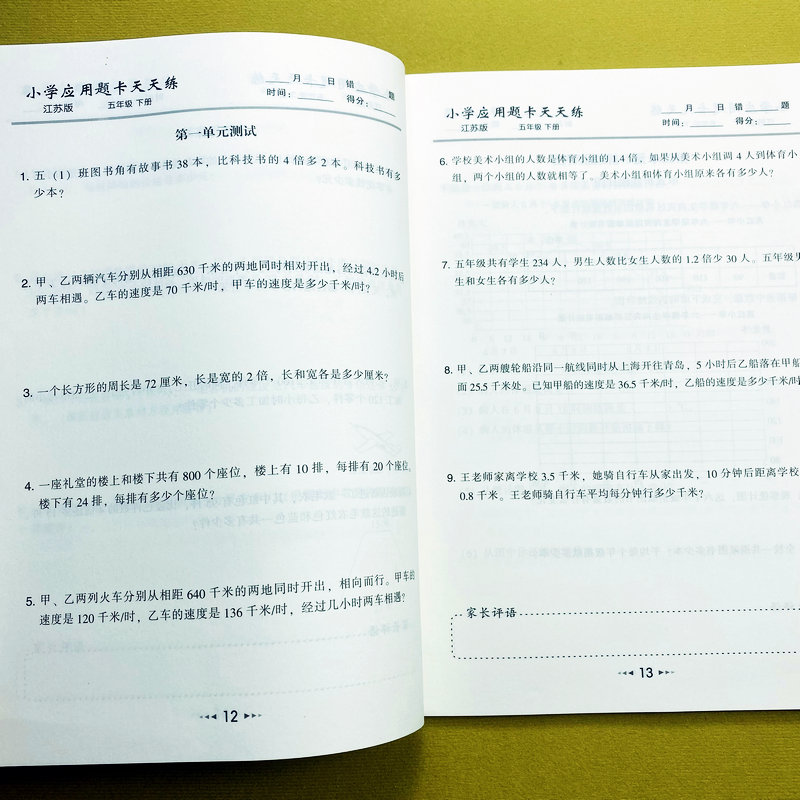 小学应用题卡天天练
江苏版 五年级 下册
月 日 错 题
时间： 得分：
第一单元测试
1. 五（1）班图书角有故事书 38 本，比科技书的 4 倍多 2 本。科技书有多
少本？
2. 甲、乙两辆汽车分别从相距 630 千米的两地同时相对开出，经过 4.2 小时后
两车相遇。乙车的速度是 70 千米/时，甲车的速度是多少千米/时？
3. 一个长方形的周长是 72 厘米，长是宽的 2 倍，长和宽各是多少厘米？
4. 一座礼堂的楼上和楼下共有 800 个座位，楼上有 10 排，每排有 20 个座位，
楼下有 24 排，每排有多少个座位？
5. 甲、乙两列火车分别从相距 640 千米的两地同时开出，相向而行。甲车的
速度是 120 千米/时，乙车的速度是 136 千米/时，经过几小时两车相遇？
12
小学应用题卡天天练
江苏版 五年级 下册
月 日 错 题
时间： 得分：
6. 学校美术小组的人数是体育小组的 1.4 倍，如果从美术小组调 4 人到体育小
组，两个小组的人数就相等了。美术小组和体育小组原来各有多少人？
7. 五年级共有学生 234 人，男生人数比女生人数的 1.2 倍少 30 人。五年级男
生和女生各有多少人？
8. 甲、乙两艘轮船沿同一航线同时从上海开往青岛，5 小时后乙船落在甲船
面 25.5 千米处。已知甲船的速度是 36.5 千米/时，乙船的速度是多少千米/时
9. 王老师家离学校 3.5 千米，她骑自行车从家出发，10 分钟后距离学校
0.8 千米。王老师骑自行车平均每分钟行多少千米？
家长评语
13